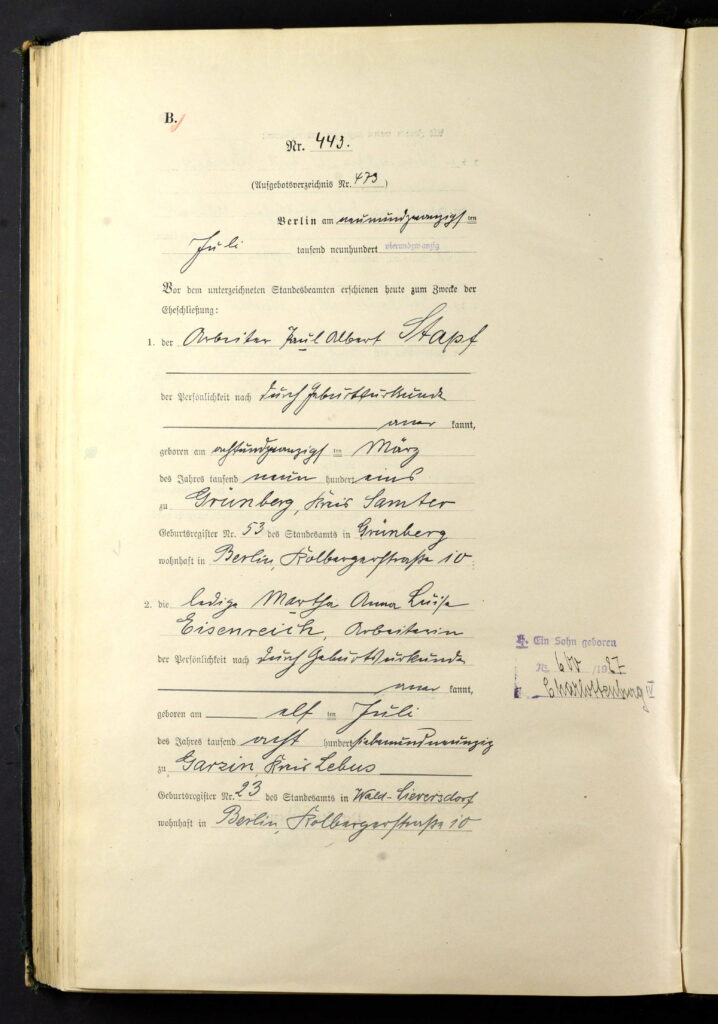 B.
Nr. 443.
(Aufgebotsverzeichnis Nr. 473)
Berlin am neunundzwanzigsten
Juli tausend neunhundert vierundzwanzig
Vor dem unterzeichneten Standesbeamten erschienen heute zum Zwecke der
Eheschließung:
1. der Arbeiter Paul Albert Stapf
der Persönlichkeit nach durch Geburtsurkunde
aner kannt,
geboren am achtundzwanzigsten März
des Jahres tausend neun hundert eins
zu Grünberg, Kreis Samter
Geburtsregister Nr. 53 des Standesamts in Grünberg
wohnhaft in Berlin, Kolbergerstraße 10
2. die ledige Martha Anna Luise
Eisenreich, Arbeiterin
der Persönlichkeit nach durch Geburtsurkunde
aner kannt,
geboren am elf ten Juli
des Jahres tausend acht hundert siebenundneunzig
zu Garzin, Kreis Lebus
Geburtsregister Nr. 23 des Standesamts in Wald-Sieversdorf
wohnhaft in Berlin, Kolbergerstraße 10
Ein Sohn geboren
Nr. /1927
Charlottenburg IV